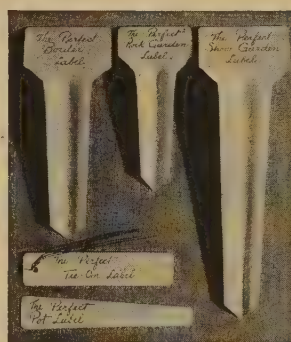 The Perfect
Border
Label
The Perfect
Rock Garden
Label.
The Perfect
Show Garden
Label
The Perfect
Tie-On Label
The Perfect
Pot Label